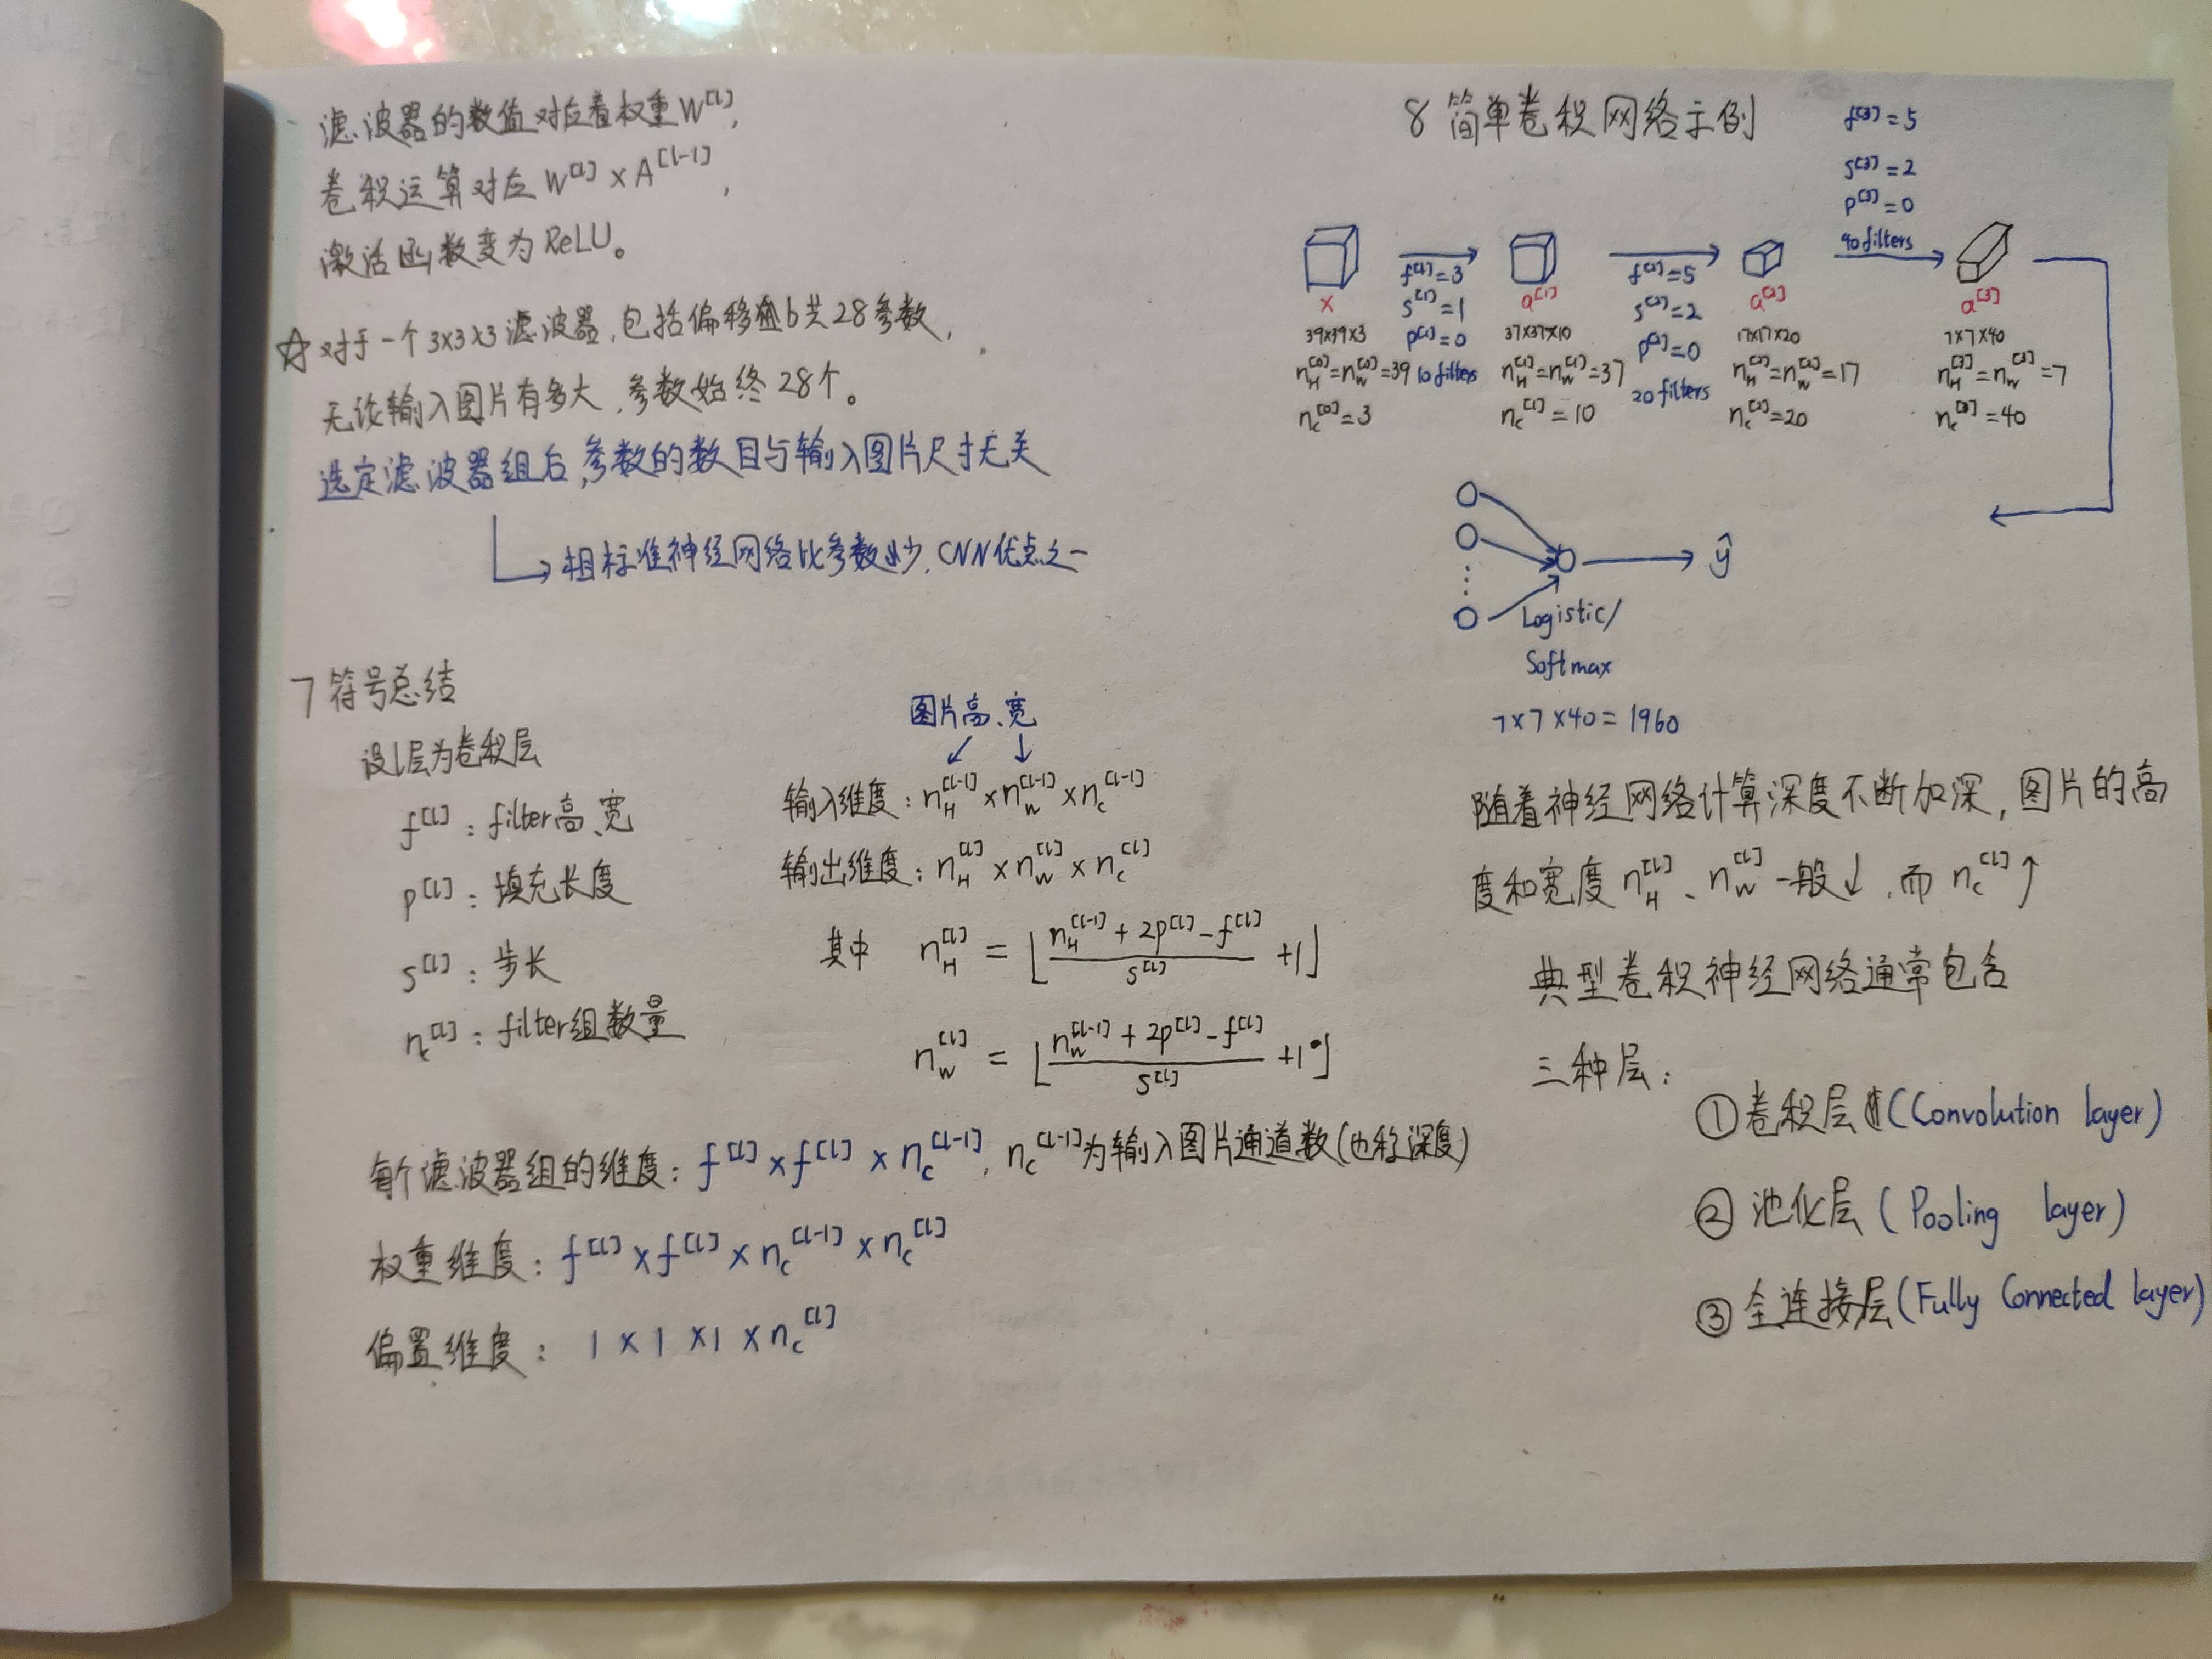 滤波器的数值对应着权重W^[l],
卷积运算对应 W^[l] × A^[l-1],
激活函数变为ReLU。
☆对于一个3×3×3滤波器,包括偏移b共28参数,
无论输入图片有多大,参数始终28个。
选定滤波器组后,参数的数目与输入图片尺寸无关
→相标准神经网络比参数少,CNN优点之一
7 符号总结
设l层为卷积层
f^[l]:filter高、宽
p^[l]:填充长度
s^[l]:步长
n_c^[l]:filter组数量
图片高、宽
↙ ↓
输入维度:n_H^[l-1] × n_W^[l-1] × n_c^[l-1]
输出维度:n_H^[l] × n_W^[l] × n_c^[l]
其中 n_H^[l] = ⌊(n_H^[l-1] + 2p^[l] - f^[l])/s^[l] + 1⌋
n_W^[l] = ⌊(n_W^[l-1] + 2p^[l] - f^[l])/s^[l] + 1⌋
每个滤波器组的维度:f^[l] × f^[l] × n_c^[l-1], n_c^[l-1]为输入图片通道数(也称深度)
权重维度:f^[l] × f^[l] × n_c^[l-1] × n_c^[l]
偏置维度:1 × 1 × 1 × n_c^[l]
8 简单卷积网络示例
x
39×39×3
n_H^[0] = n_W^[0] = 39
n_c^[0] = 3
f^[1] = 3
s^[1] = 1
p^[1] = 0
10 filters
a^[1]
37×37×10
n_H^[1] = n_W^[1] = 37
n_c^[1] = 10
f^[2] = 5
s^[2] = 2
p^[2] = 0
20 filters
a^[2]
17×17×20
n_H^[2] = n_W^[2] = 17
n_c^[2] = 20
f^[3] = 5
s^[3] = 2
p^[3] = 0
40 filters
a^[3]
7×7×40
n_H^[3] = n_W^[3] = 7
n_c^[3] = 40
ŷ
Logistic/
Softmax
7×7×40 = 1960
随着神经网络计算深度不断加深,图片的高
度和宽度 n_H^[l]、n_W^[l] 一般↓,而 n_c^[l] ↑
典型卷积神经网络通常包含
三种层:
①卷积层(Convolution layer)
②池化层(Pooling layer)
③全连接层(Fully Connected layer)